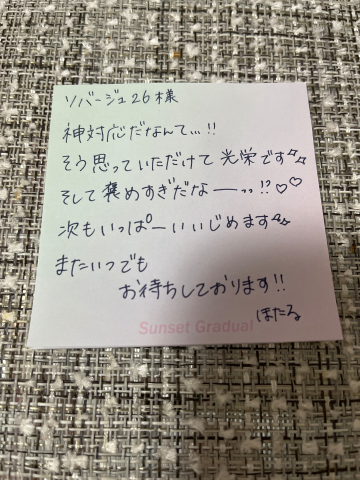 リバージュ26様
神対応だなんて...!!
そう思っていただけて光栄です✨
そして褒めすぎだなー,,!?♡♡
次もいっぱーいいじめます✨
またいつでも
お待ちしております!!
ほたる
Sunset Gradual